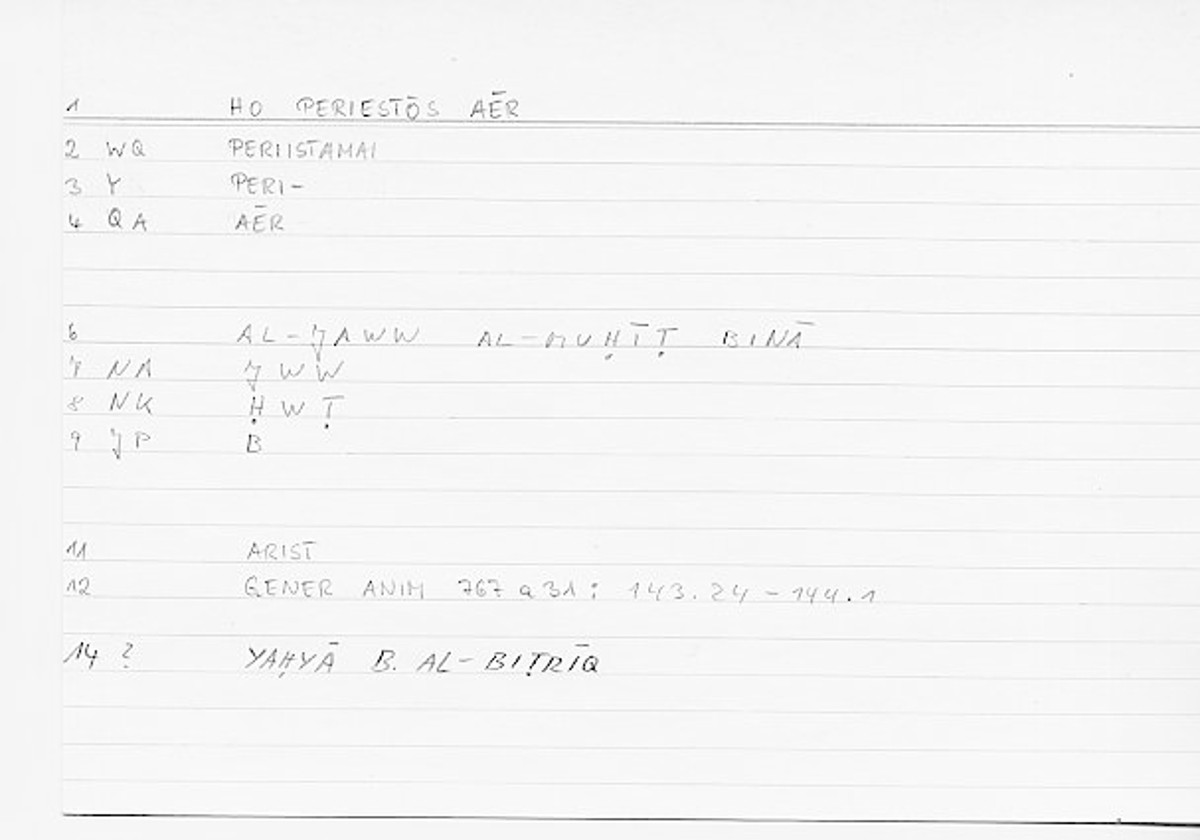 1 HO PERIESTŌS AĒR
2 WQ PERIISTAMAI
3 Y PERI-
4 QA AĒR
6 AL-JAWW AL-MUḤĪṬ BINĀ
7 NA JWW
8 NK ḤWṬ
9 JP B
11 ARIST
12 GENER ANIM 767 a 31 : 143.24 - 144.1
14 ? YAḤYĀ B. AL-BIṬRĪQ